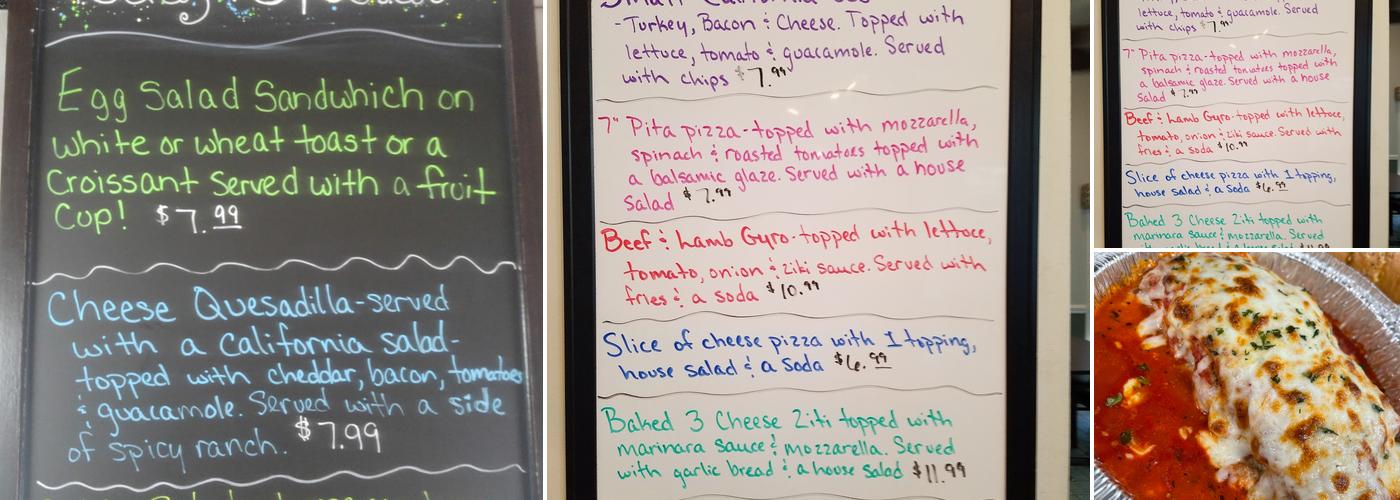 Egg Salad Sandwhich on
white or wheat toast or a
Croissant Served with a fruit
Cup! $7.99
Cheese Quesadilla-served
with a California salad-
topped with cheddar, bacon, tomatoes
& guacamole. Served with a side
of spicy ranch. $7.99
Small California
-Turkey, Bacon & Cheese. Topped with
lettuce, tomato & guacamole. Served
with chips $7.99
7" Pita pizza-topped with mozzarella,
spinach & roasted tomatoes topped with
a balsamic glaze. Served with a house
Salad $7.99
Beef & Lamb Gyro-topped with lettuce,
tomato, onion & ziki sauce. Served with
fries & a soda $10.99
Slice of cheese pizza with 1 topping,
house salad & a Soda $6.99
Baked 3 Cheese Ziti topped with
marinara sauce & mozzarella. Served
with garlic bread & a house salad $11.99
lettuce, tomato & guacamole. Served
with chips $7.99
7" Pita pizza-topped with mozzarella,
spinach & roasted tomatoes topped with
a balsamic glaze. Served with a house
Salad $7.99
Beef & Lamb Gyro-topped with lettuce,
tomato, onion & ziki sauce. Served with
fries & a soda $10.99
Slice of cheese pizza with 1 topping,
house salad & a Soda $6.99
Baked 3 Cheese Ziti topped with
marinara sauce & mozzarella. Served